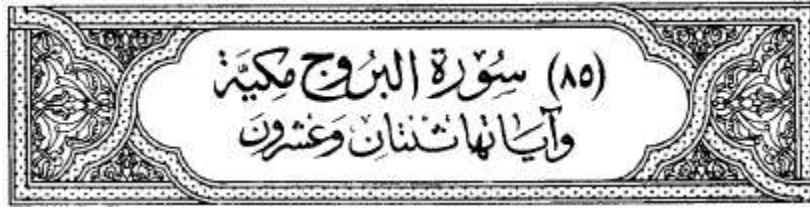 (٨٥) سُوْرَة البُرُوج مَكِيَّة
وَآيَاتهَا ثنْتَانِ وَعشْرُونَ